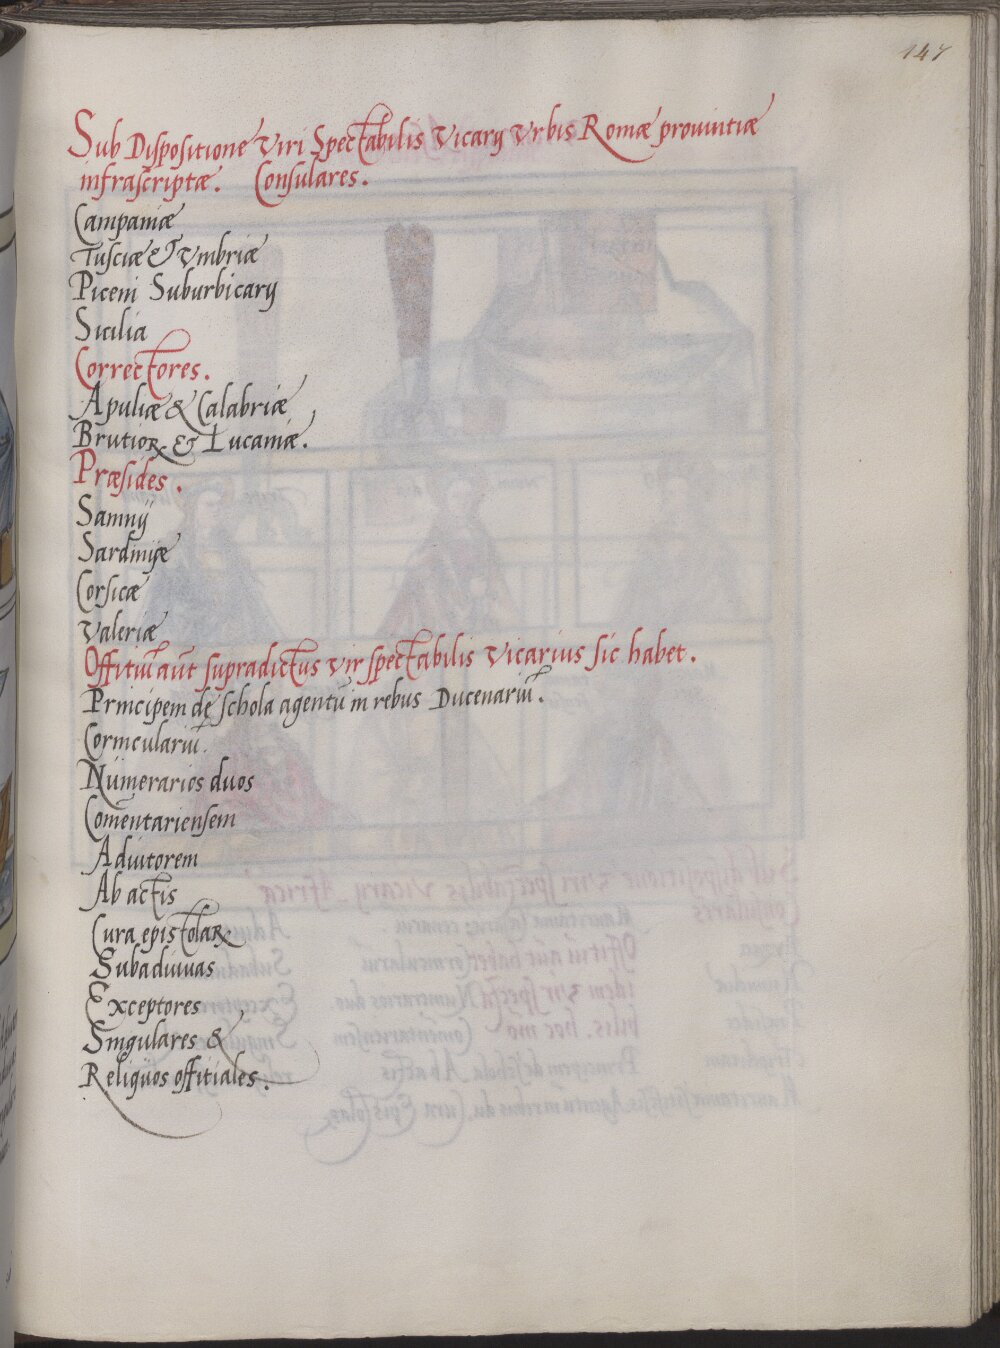 147
Sub Dispositione Viri Spectabilis Vicarij Vrbis Romæ prouintiæ
infrascriptæ. Consulares.
Campaniæ
Tusciæ & Vmbriæ
Piceni Suburbicarij
Sicilia
Correctores.
Apuliæ & Calabriæ
Brutioꝝ & Lucaniæ.
Præsides.
Samnij
Sardinijæ
Corsicæ
Valeriæ
Offitiū aūt supradictus vir spectabilis Vicarius sic habet.
Principem de schola agentū in rebus Ducenariū.
Corniculariū.
Numerarios duos
Comentariensem
Adiutorem
Ab actis
Cura epistolaꝝ
Subadiuuas
Exceptores
Singulares &
Reliquos offitiales.